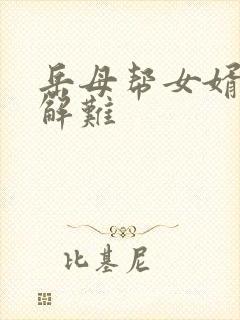 岳母帮女婿
解難
比基尼